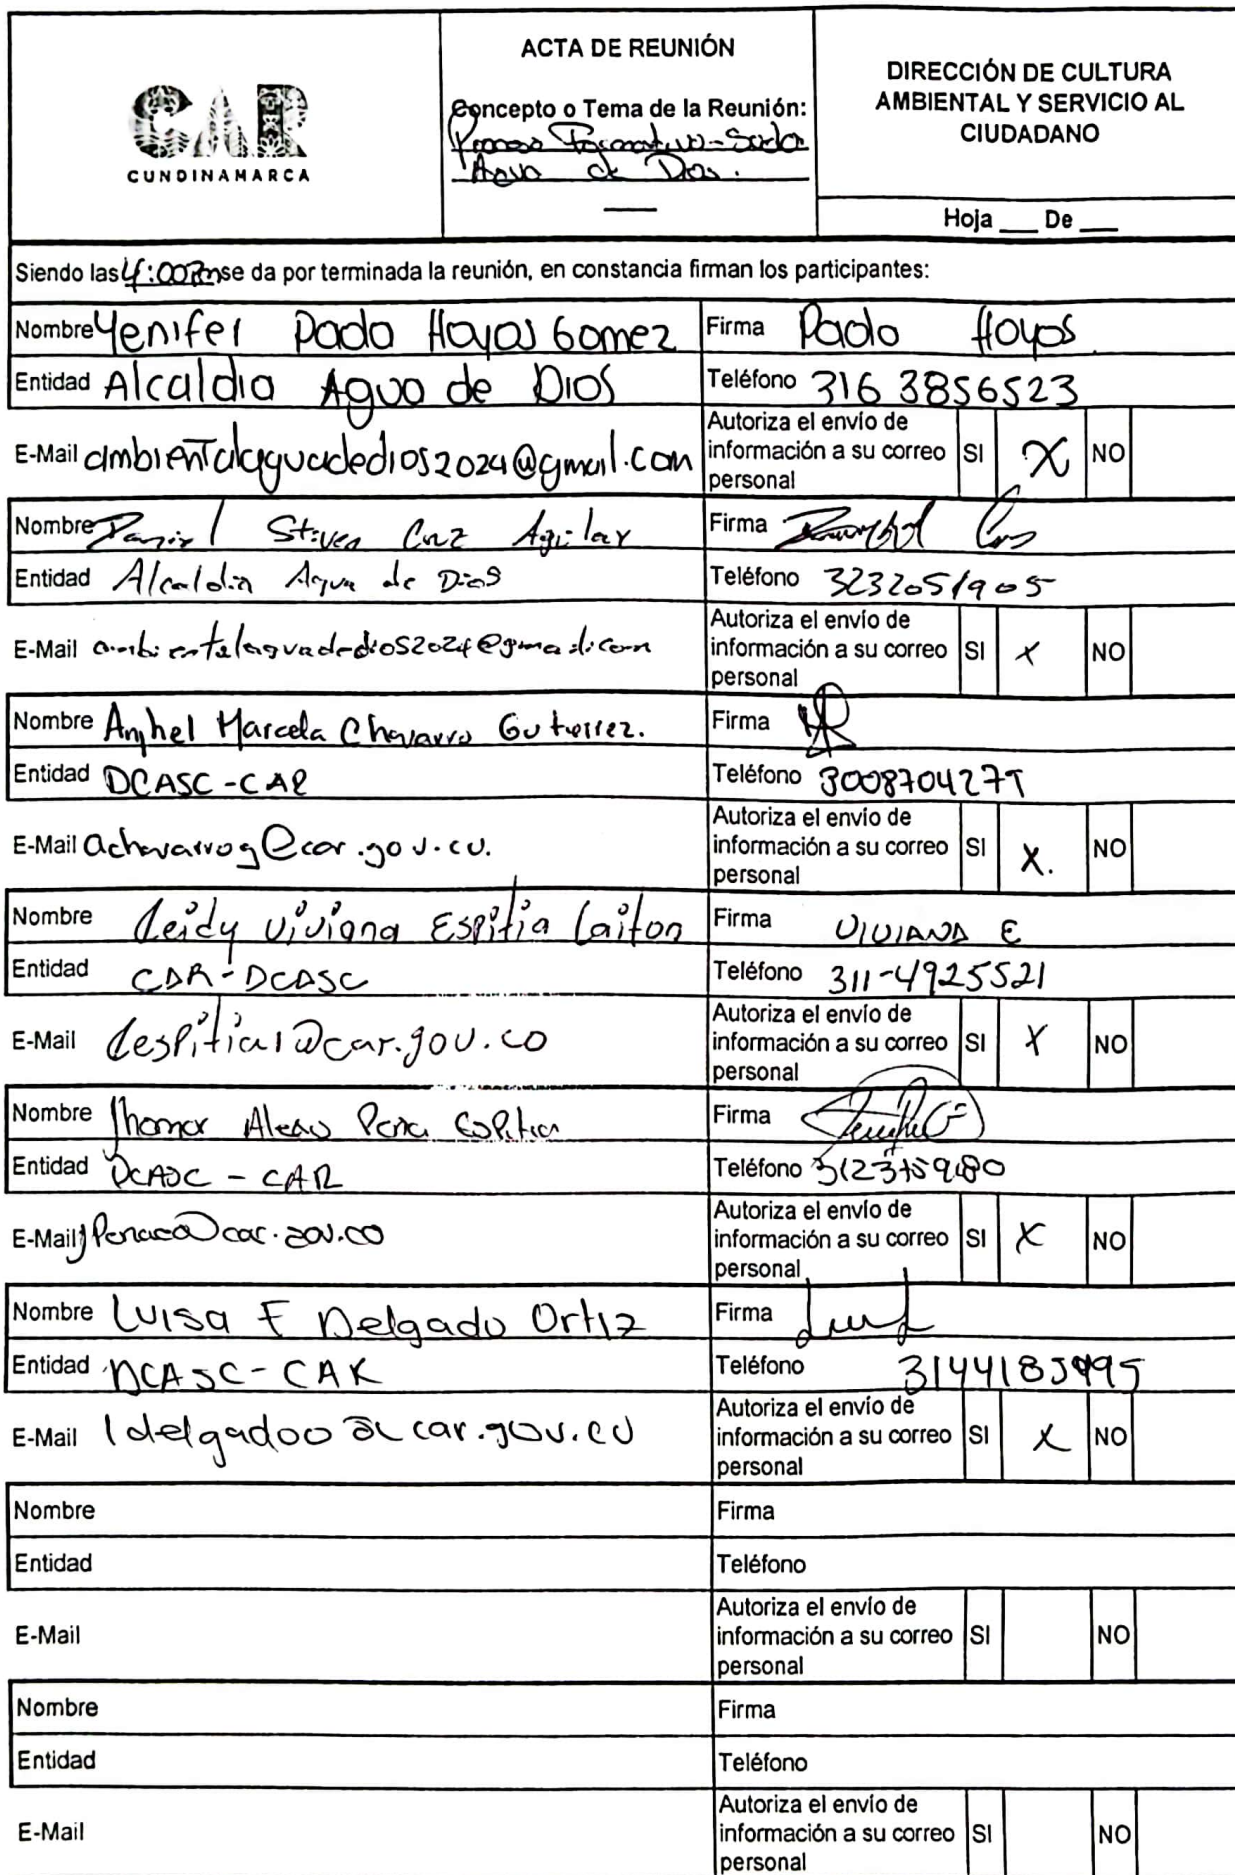 CAR
CUNDINAMARCA
ACTA DE REUNIÓN
Concepto o Tema de la Reunión:
Proceso Formativo-Sector
Agua de Dios.
DIRECCIÓN DE CULTURA
AMBIENTAL Y SERVICIO AL
CIUDADANO
Hoja ___ De ___
Siendo las 4:00Pm se da por terminada la reunión, en constancia firman los participantes:
Nombre Yenifer Paola Hoyos Gomez Firma Paola Hoyos
Entidad Alcaldia Agua de Dios Teléfono 316 3856523
E-Mail ambientalaguadedios2024@gmail.com Autoriza el envío de información a su correo personal SI X NO
Nombre Daniel Stiven Cruz Aguilar Firma
Entidad Alcaldia Agua de Dios Teléfono 3232051905
E-Mail ambientalaguadedios2024@gmail.com Autoriza el envío de información a su correo personal SI X NO
Nombre Anghel Marcela Chavarro Gutierrez. Firma
Entidad DCASC-CAR Teléfono
E-Mail achavarrog@car.gov.co. Autoriza el envío de información a su correo personal SI X. NO
Nombre Leidy Viviana Espitia Laiton Firma VIVIANA E
Entidad CAR-DCASC Teléfono 311-4925521
E-Mail lespitial@car.gov.co Autoriza el envío de información a su correo personal SI X NO
Nombre Jhomar Peña Firma
Entidad DCASC - CAR Teléfono
E-Mail Autoriza el envío de información a su correo personal SI X NO
Nombre Luisa F Delgado Ortiz Firma
Entidad DCASC-CAR Teléfono
E-Mail ldelgadoo@car.gov.co Autoriza el envío de información a su correo personal SI X NO
Nombre Firma
Entidad Teléfono
E-Mail Autoriza el envío de información a su correo personal SI NO
Nombre Firma
Entidad Teléfono
E-Mail Autoriza el envío de información a su correo personal SI NO